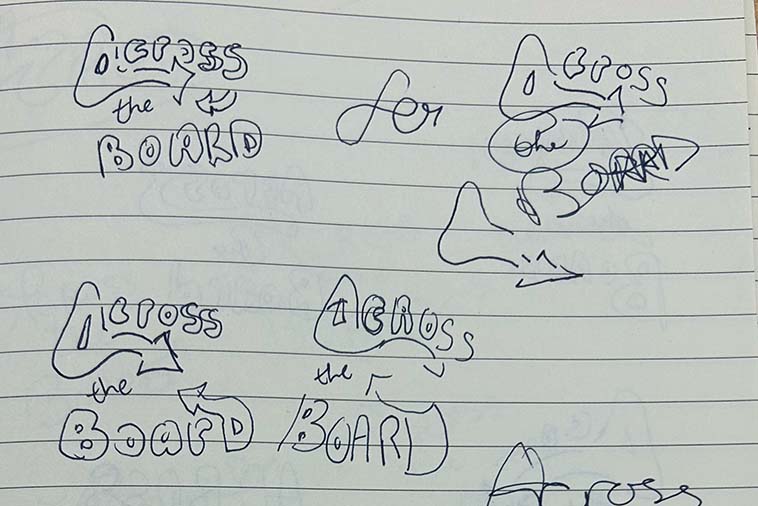 Across
the
BOARD
for
Across
the
BOARD
Across
the
BOARD
Across
the
BOARD
Across